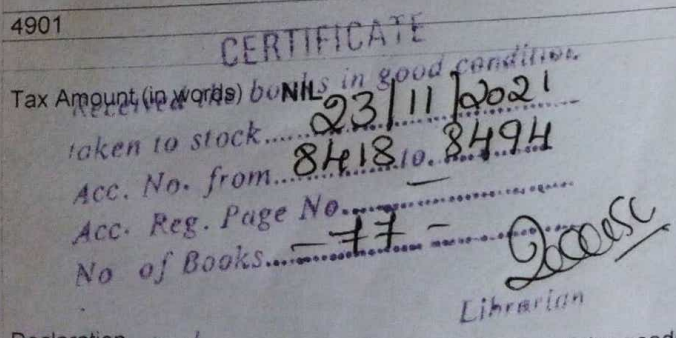 4901
CERTIFICATE
Tax Amount (in words) NIL
Received the books in good condition
taken to stock.....23/11/2021
Acc. No. from...8418 to...8494
Acc. Reg. Page No.... —
No of Books.... -77-
Librarian
Declaration